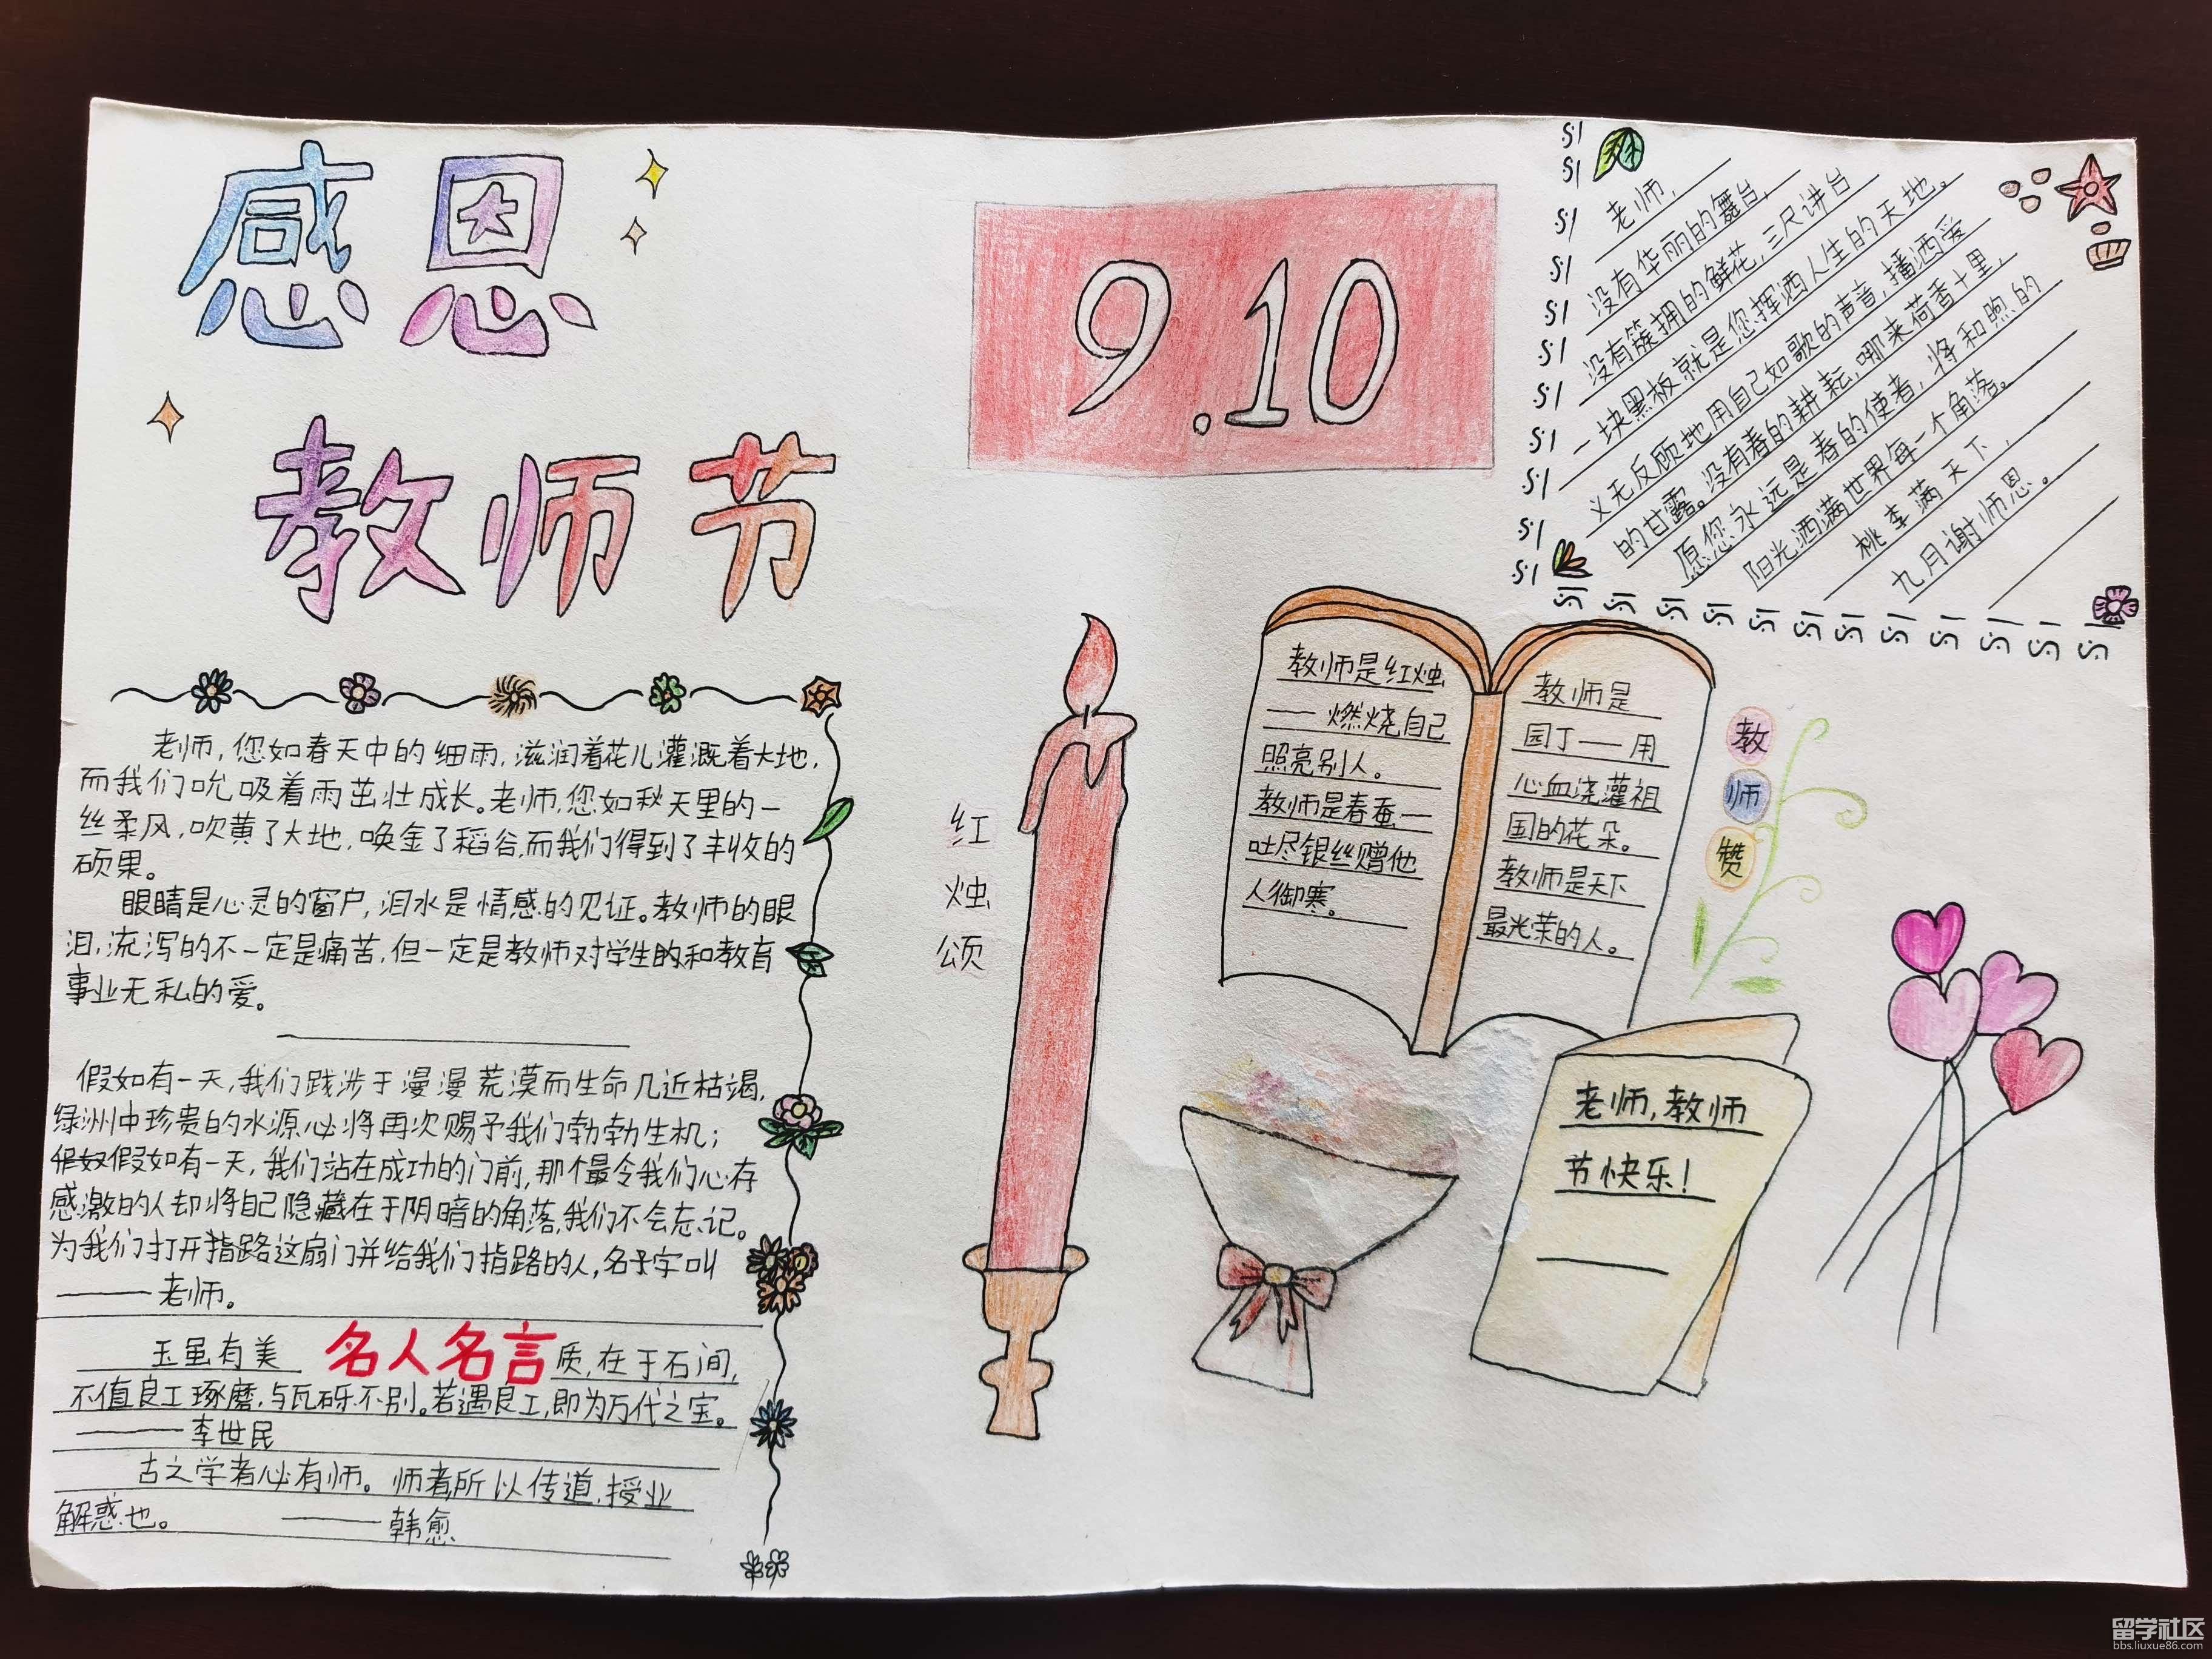 感恩
教师节
老师,您如春天中的细雨,滋润着花儿灌溉着大地,
而我们吮吸着雨茁壮成长。老师,您如秋天里的一
丝柔风,吹黄了大地,唤金了稻谷,而我们得到了丰收的
硕果。
眼睛是心灵的窗户,泪水是情感的见证。教师的眼
泪,流泻的不一定是痛苦,但一定是教师对学生的和教育
事业无私的爱。
假如有一天,我们跋涉于漫漫荒漠而生命几近枯竭,
绿洲中珍贵的水源必将再次赐予我们勃勃生机;
假如有一天,我们站在成功的门前,那个最令我们心存
感激的人却将自己隐藏在于阴暗的角落,我们不会忘记。
为我们打开指路这扇门并给我们指路的人,名字叫
——老师。
名人名言
玉虽有美质,在于石间,
不值良工琢磨,与瓦砾不别。若遇良工,即为万代之宝。
——李世民
古之学者必有师。师者,所以传道,授业
解惑也。 ——韩愈
9.10
红
烛
颂
教师是红烛
——燃烧自己
照亮别人。
教师是春蚕—
吐尽银丝赠他
人御寒。
教师是
园丁——用
心血浇灌祖
国的花朵。
教师是天下
最光荣的人。
教
师
赞
老师,
没有华丽的舞台,
没有簇拥的鲜花,三尺讲台
一块黑板就是您挥洒人生的天地。
义无反顾地用自己如歌的声音,播洒爱
的甘露。没有春的耕耘,哪来荷香十里,
愿您永远是春的使者,将和煦的
阳光洒满世界每一个角落。
桃李满天下,
九月谢师恩。
老师,教师
节快乐!
留学社区
bbs.liuxue86.com